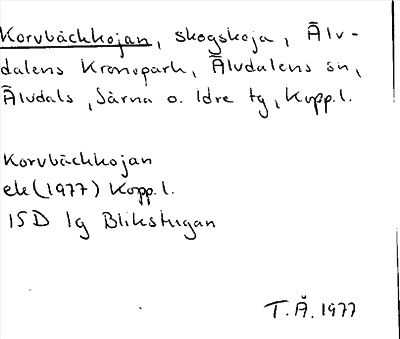 Korvbäckkojan, skogskoja, Älv-
dalens Kronopark, Älvdalens sn,
Älvdals, Särna o. Idre tg, Kopp.l.
Korvbäckkojan
ek (1977) Kopp.l.
15D 1g Blikstugan
T.Å. 1977